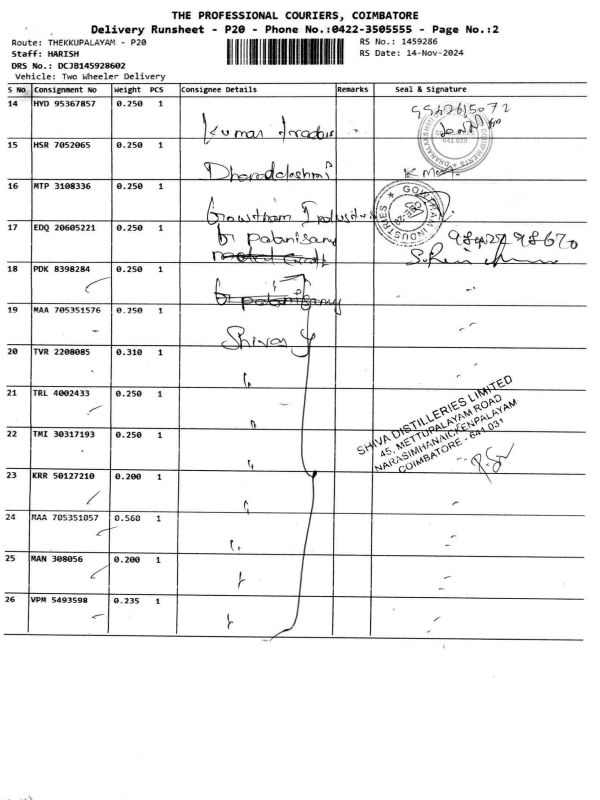 THE PROFESSIONAL COURIERS, COIMBATORE
Delivery Runsheet - P20 - Phone No.:0422-3505555 - Page No.:2
Route: THEKKUPALAYAM - P20
RS No.: 1459286
Staff: HARISH
RS Date: 14-Nov-2024
DRS No.: DCJB145928602
Vehicle: Two Wheeler Delivery
S No Consignment No Weight PCS Consignee Details Remarks Seal & Signature
14 HYD 95367857 0.250 1 Kumar
15 HSR 7052065 0.250 1
16 MTP 3108336 0.250 1 Gowtham Industries
GOWTHAM INDUSTRIES
17 EDQ 20605221 0.250 1 palanisamy
18 PDK 8398284 0.250 1 palanisamy
19 MAA 705351576 0.250 1 Shiva
20 TVR 2208085 0.310 1
21 TRL 4002433 0.250 1
SHIVA DISTILLERIES LIMITED
45, METTUPALAYAM ROAD
NARASIMHANAICKENPALAYAM
COIMBATORE - 641 031
22 TMI 30317193 0.250 1
23 KRR 50127210 0.200 1
24 MAA 705351057 0.560 1
25 MAN 308056 0.200 1
26 VPM 5493598 0.235 1